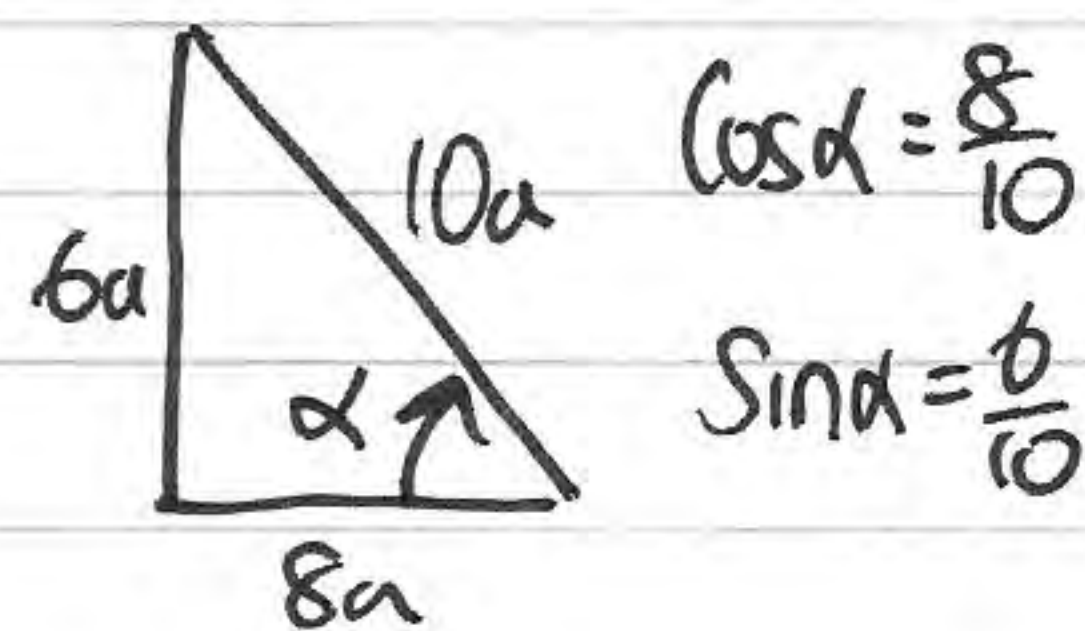 10a
6a
α
8a
Cosα = 8/10
Sinα = 6/10